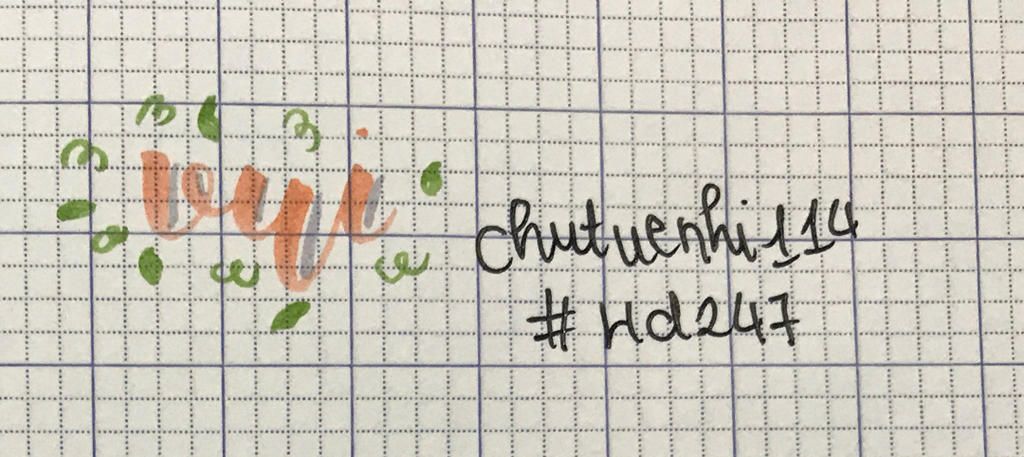 vyi
chutuenhi114
#Hd247